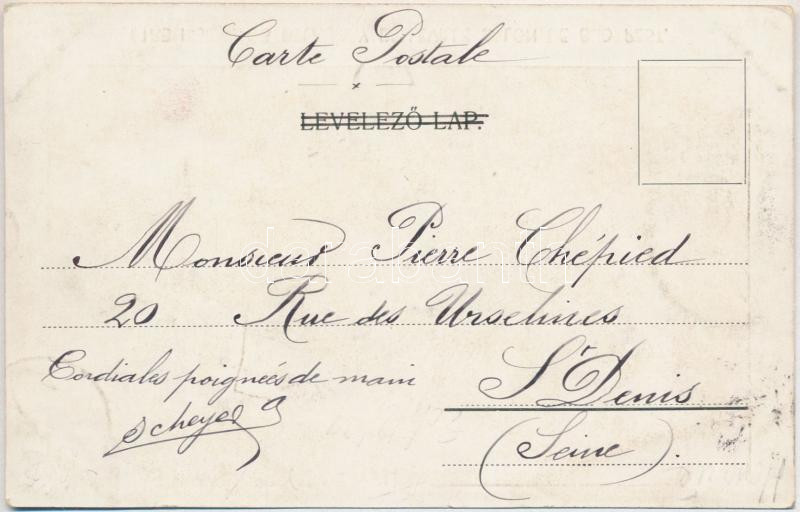 Carte Postale
LEVELEZŐ LAP.
Monsieur Pierre Chépied
20 Rue des Urselines
Cordiales poignées de main
Scheyer
St Denis
(Seine).